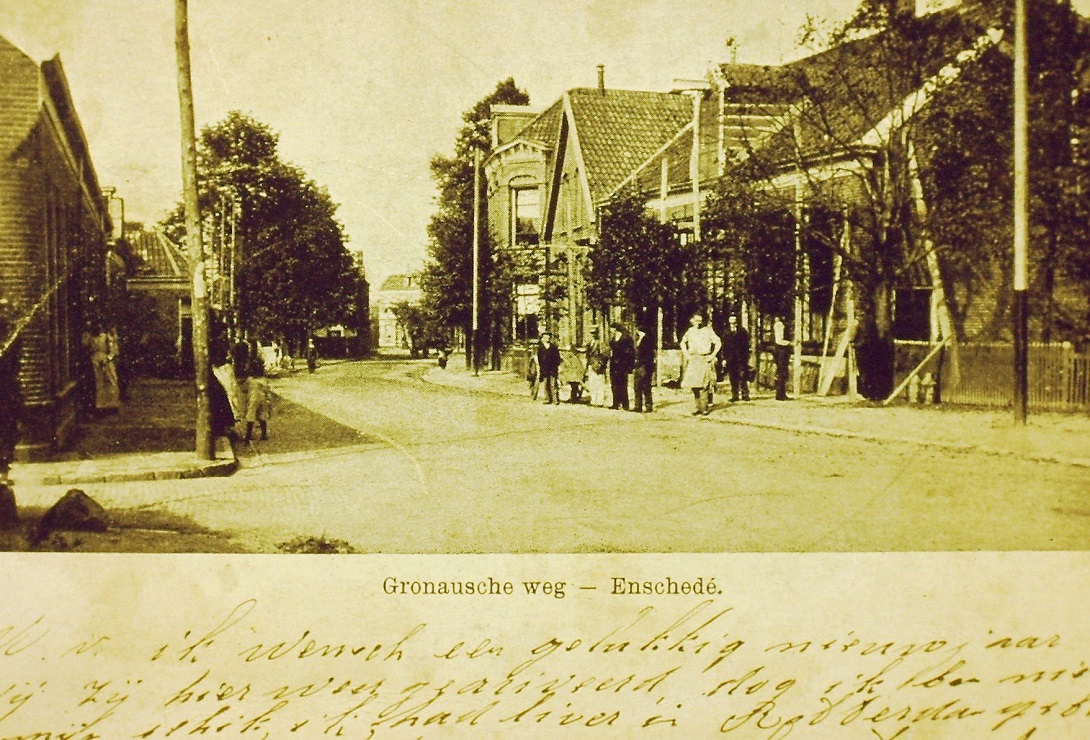 Gronausche weg — Enschedé.
ik wensch een gelukkig nieuwjaar
zij hier weer gearriveerd, dog ik ben
schik, ik had liver in